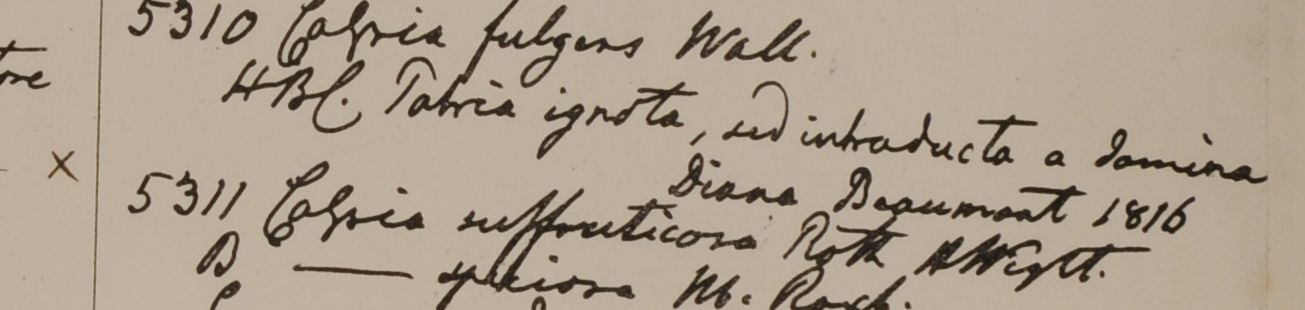 5310 Cassia fulgens Wall.
HBC. Patria ignota, sed introducta a domina
Diana Beaumont 1816
5311 Cassia suffruticosa Roth HWight.
B —— speciosa Hb. Roxb.